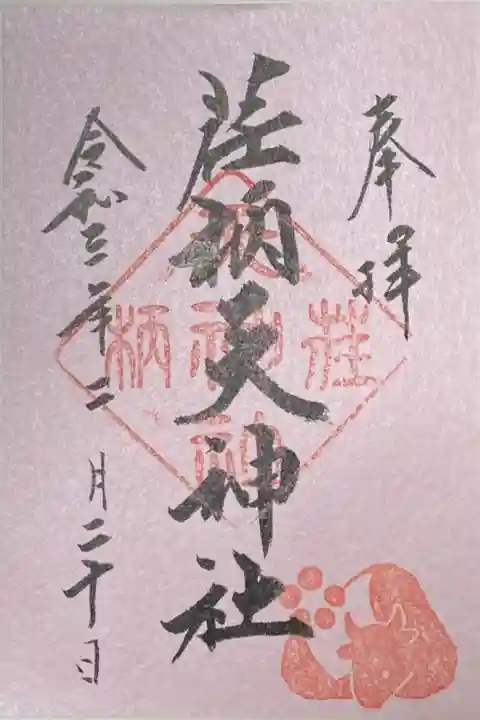 奉拝
荏柄天神社
令和三年二月二十日
荏
神
柄